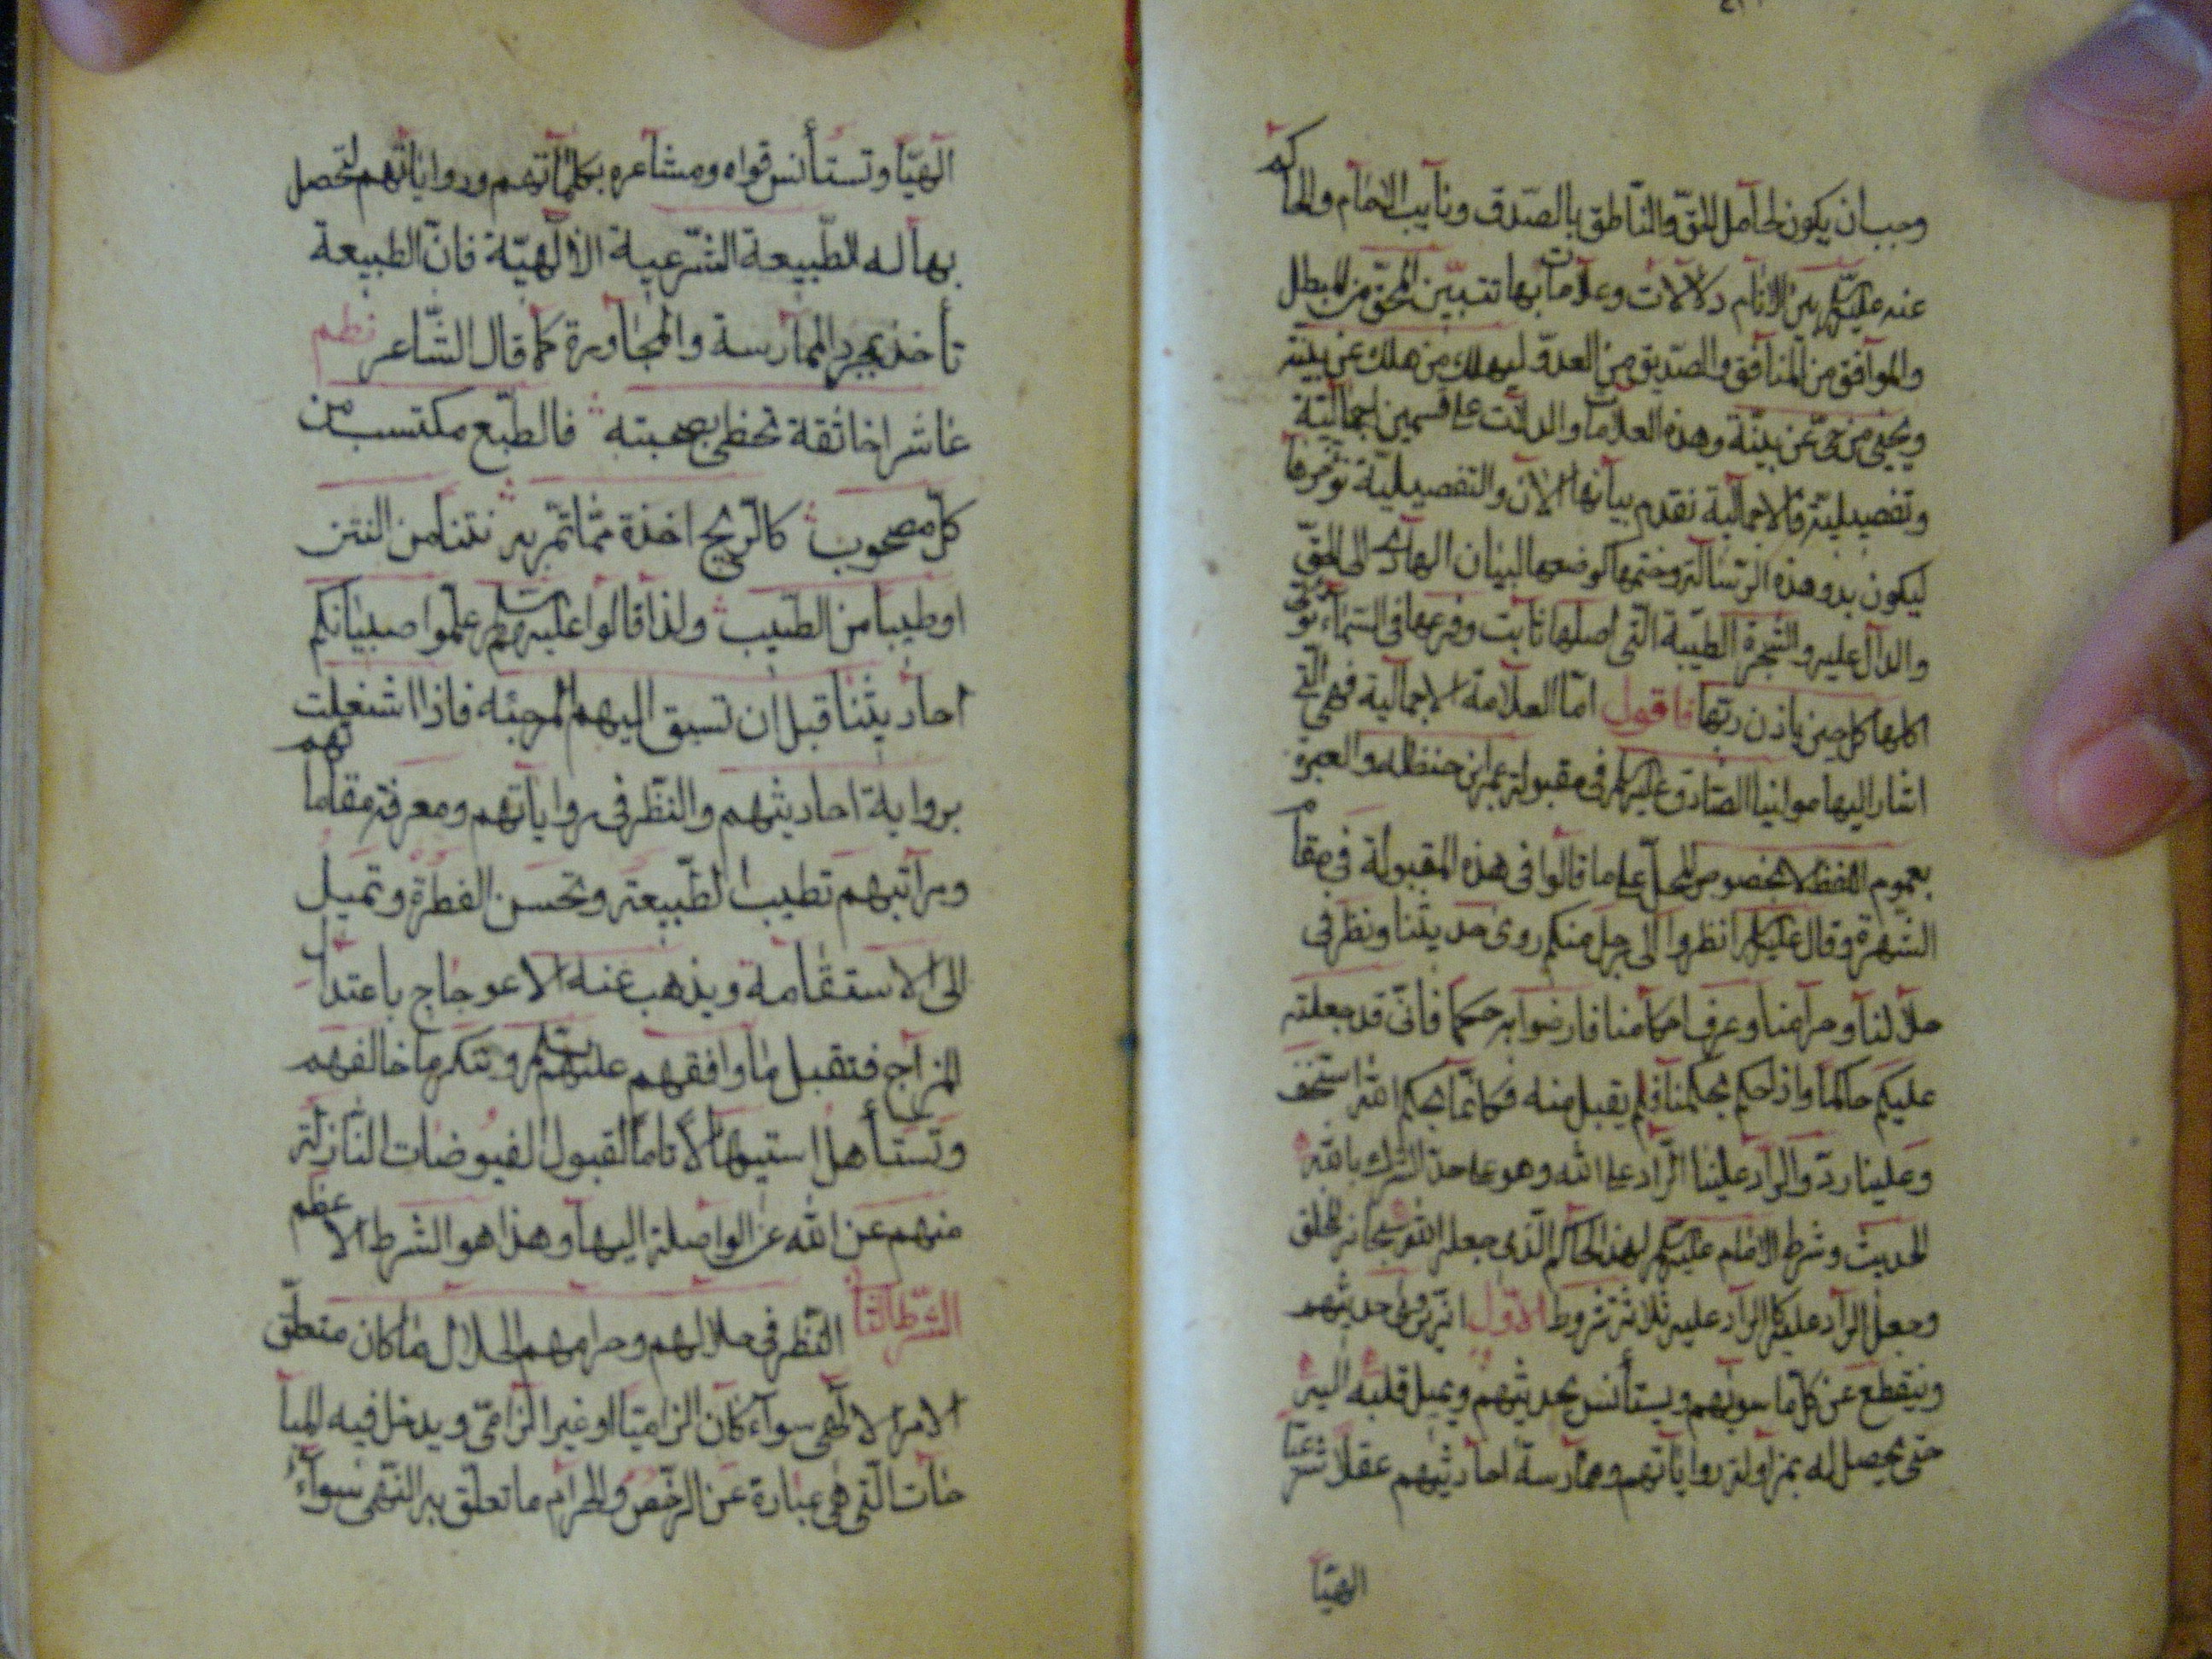 وجب ان يكون لحامل الحقّ والنّاطق بالصّدق ونايب الامام والحاكم
عنه عليه السلام بين الانام دلالات وعلامات بها تتبيّن المحقّ من المبطل
والموافق من المنافق والصّديق من العدوّ ليهلك من هلك عن بيّنة
ويحيى من حىّ عن بيّنة وهذه العلامات والدلالات على قسمين اجماليّة
وتفصيليّة فالاجمالية نقدم بيانها الآن والتفصيليّة نؤخرها
ليكون بدو هذه الرّسالة وختمها لوضعها لبيان الهادى الى الحقّ
والدالّ عليه والشّجرة الطيّبة الّتى اصلها ثابت وفرعها فى السّماء تؤتى
اكلها كلّ حين باذن ربّها فاقول امّا العلامة الاجمالية فهى الّتى
اشار اليها مولينا الصّادق عليه السلام فى مقبولة عمر بن حنظله والعبرة
بعموم اللفظ لا بخصوص المحلّ على ما قالوا فى هذه المقبولة فى مقام
الشّهرة وقال عليه السلام انظروا الى رجل منكم روى حديثنا ونظر فى
حلالنا وحرامنا وعرف احكامنا فارضوا به حكما فانّى قد جعلته
عليكم حاكما واذا حكم بحكمنا فلم يقبل منه فكانّما بحكم الله استخف
وعلينا ردّ والرّاد علينا الرّاد على الله وهو على حدّ الشرك بالله
الحديث وشرط الامام عليه السلام لهذا الحاكم الّذى جعله الله سبحانه للخلق
وجعل الرّاد عليه كالرّاد عليه ثلاثة شروط الاوّل انّه روى حديثهم
وينقطع عن كلّ ما سويهم ويستأنس بحديثهم ويميل قلبه اليه
حتّى يحصل له بمزاولة رواياتهم وممارسة احاديثهم عقلا شرعيّا
الهيّا
الهيّا وتستأنس قواه ومشاعره بكلماتهم ورواياتهم لتحصل
بها له الطّبيعة الشّرعيية الالهيّة فانّ الطبيعة
تأخذ بمجرد الممارسة والمجاورة كما قال الشّاعر نظم
عاشر اخا ثقة تحظى بصحبته فالطّبع مكتسب من
كلّ مصحوب كالرّيح اخذة ممّا تمّر به نتنا من النتن
او طيبا من الطّيب ولذا قالوا عليهم السلام علّموا صبيانكم
احاديثنا قبل ان تسبق اليهم المرجئه فاذا اشتغلت
برواية احاديثهم والنظّر فى رواياتهم ومعرفة مقاماتهم
ومراتبهم تطيب الطّبيعة وتحسن الفطرة وتميل
الى الاستقامة ويذهب عنه الاعوجاج باعتدال
المزاج فتقبل ما وافقهم عليهم السلام وتنكر ما خالفهم
وتستأهل استيهالا تاما لقبول الفيوضات النّازلة
منهم عن الله عز الواصلة اليها وهذا هو الشرط الاعظم
الشّرط الثّانى النّظر فى حلالهم وحرامهم الحلال ما كان متعلّق
الامر الالهى سوآء كان الزاميّا او غير الزامىّ ويدخل فيه المبا
حات الّتى هى عبارة عن الرّخص والحرام ما تعلّق به النّهى سوآء